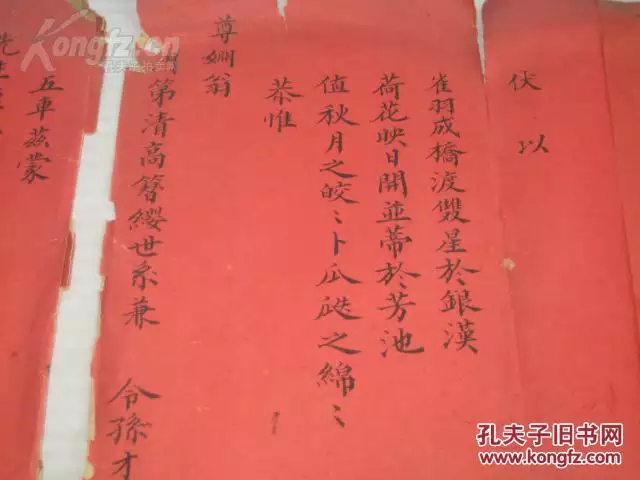 伏以
雀羽成橋渡雙星於銀漢
荷花映日開並蒂於芳池
值秋月之皎〻卜瓜瓞之綿〻
恭惟
尊姻翁
第清高簪纓世系兼 令孫才
五車茲蒙
先生
Kongfz.com
孔夫子拍卖网
孔夫子旧书网
www.kongfz.com